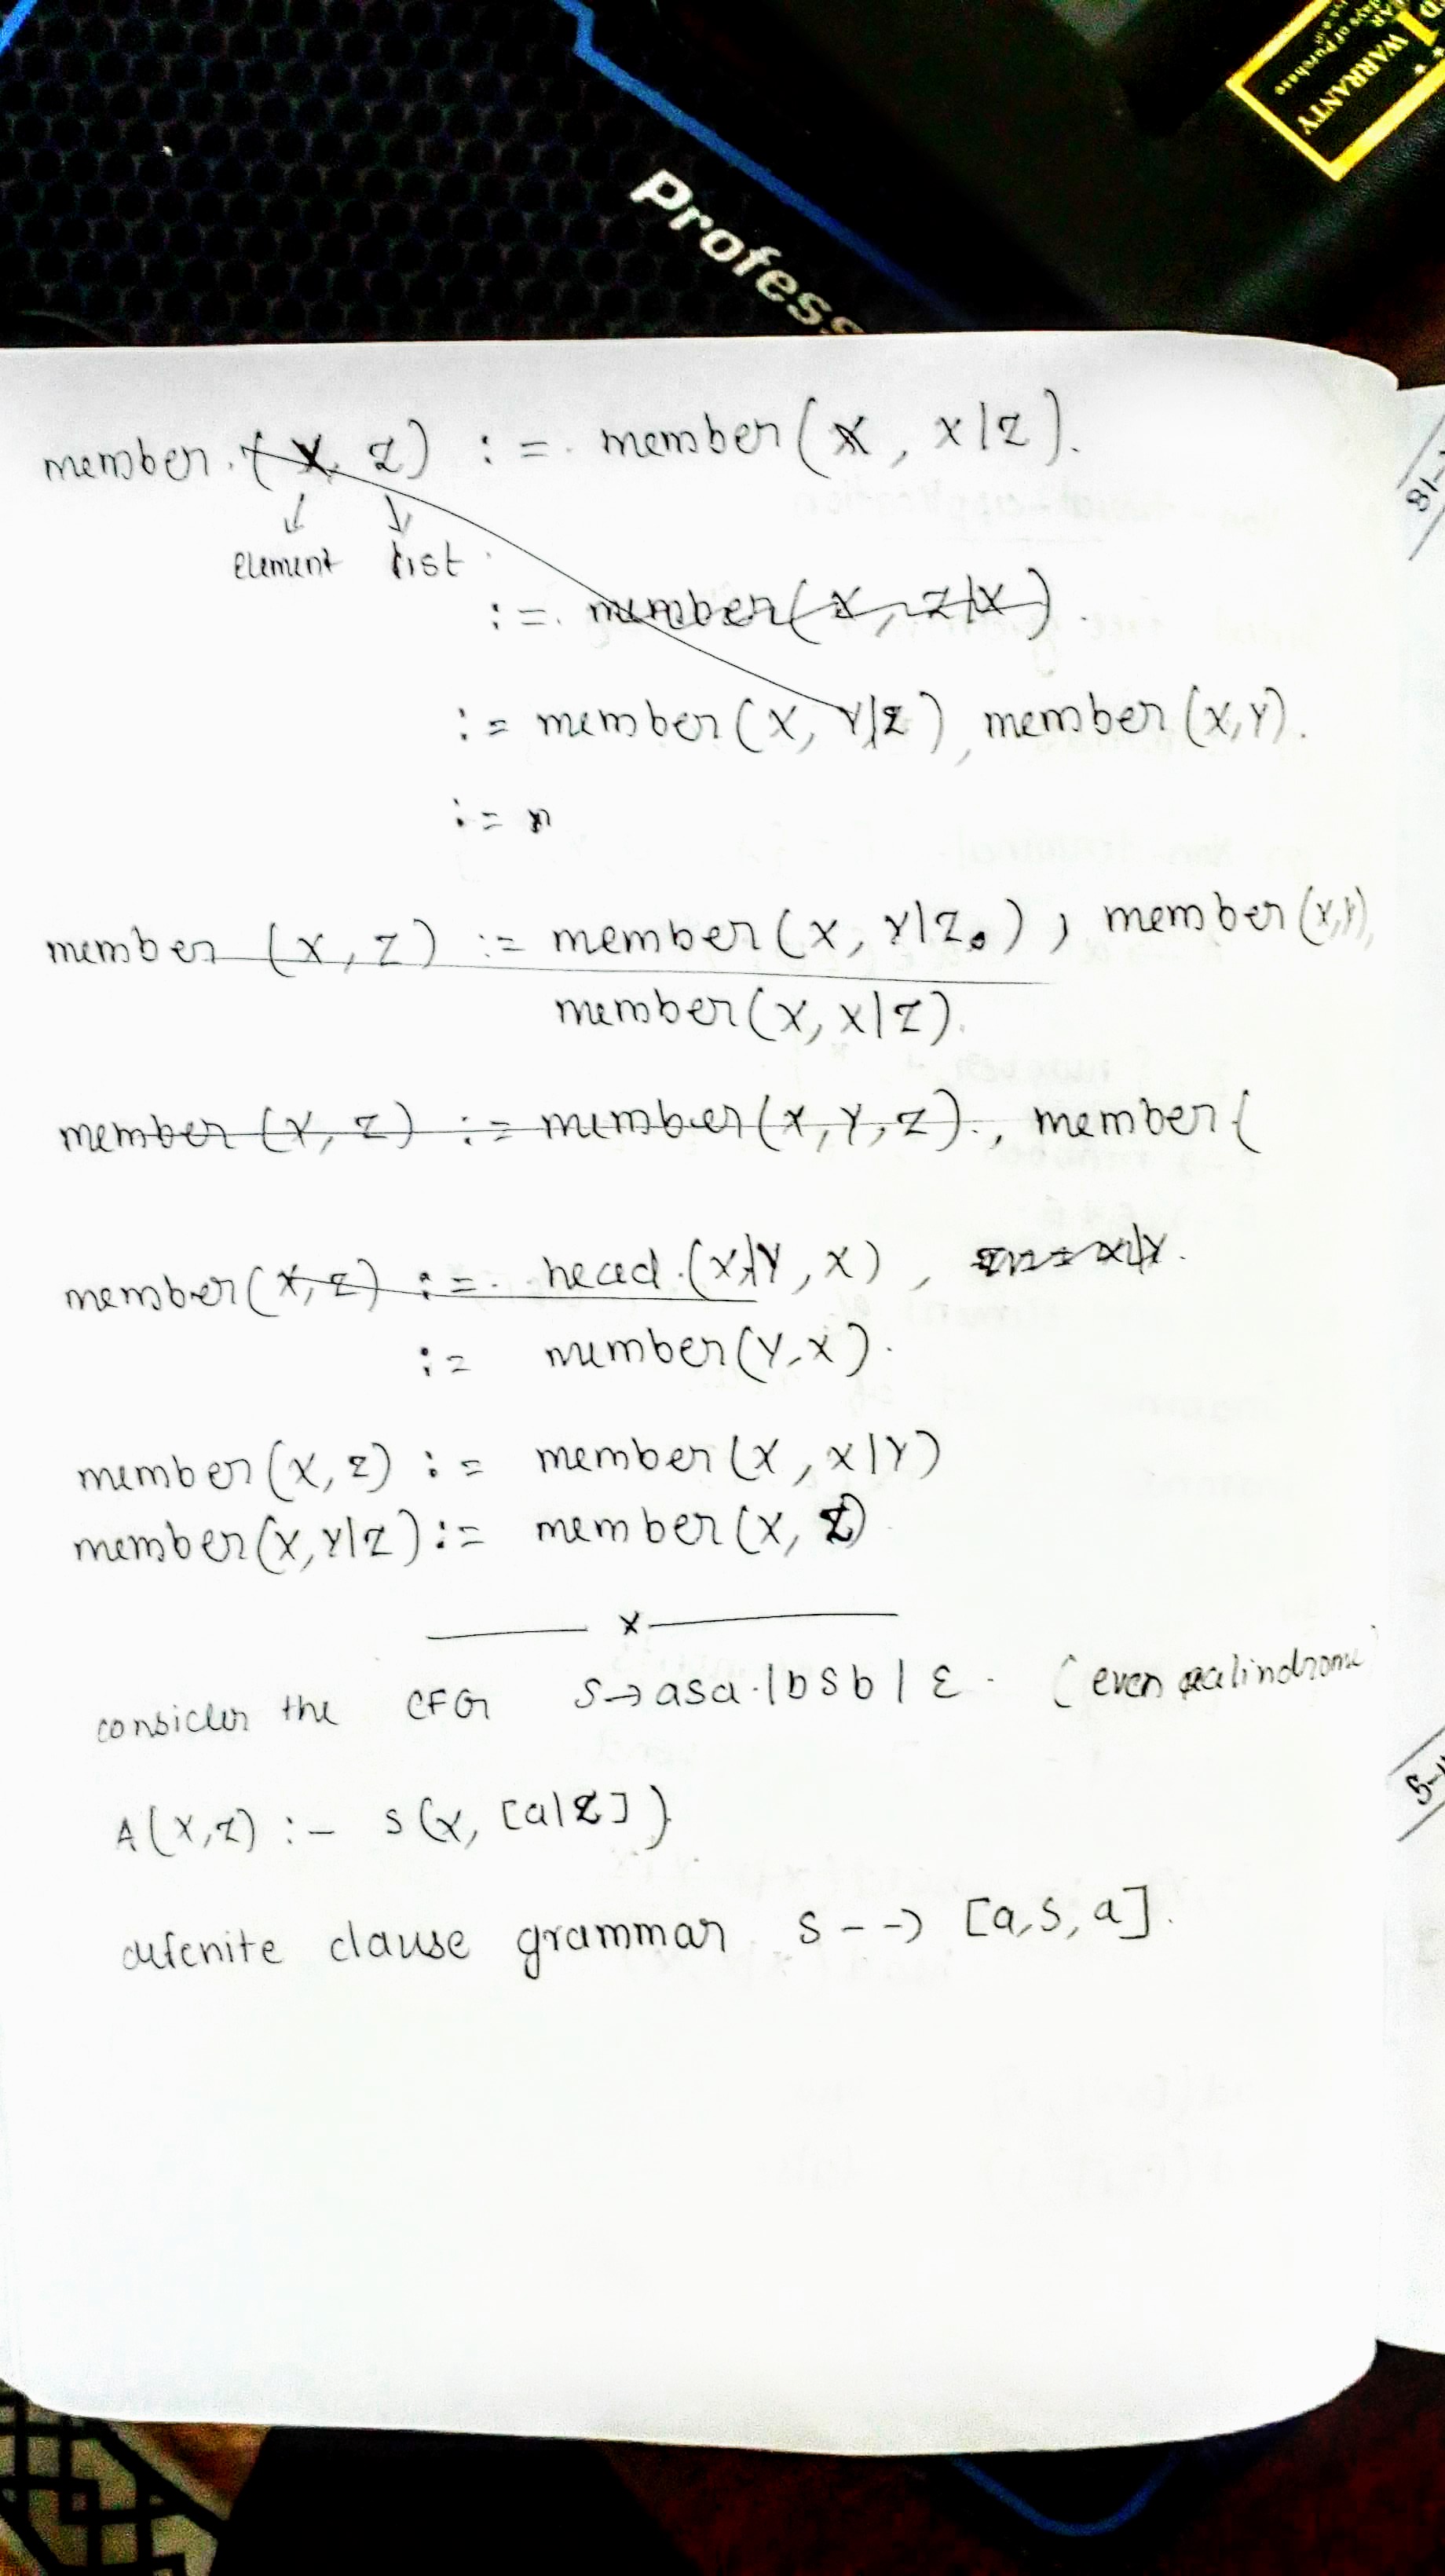 WARRANTY
Profess
member. (X, Z) := member(X, X|Z).
Element List
:= member(X, Z|X).
:= member(X, Y|Z), member(X,Y).
:=
member (X, Z) := member(X, Y|Z), member(X,Y),
member(X, X|Z).
member (X, Z) := member(X, Y, Z)., member(
member(X, Z) := head.(X|Y, X),
:= member(Y, X).
member(X, Z) := member(X, X|Y)
member(X, Y|Z) := member(X, Z)
x
consider the CFG S→aSa.|bSb|ε. (even palindrome)
A(X,Z) :- S(X, [a|Z])
defenite clause grammar S--> [a,S,a].